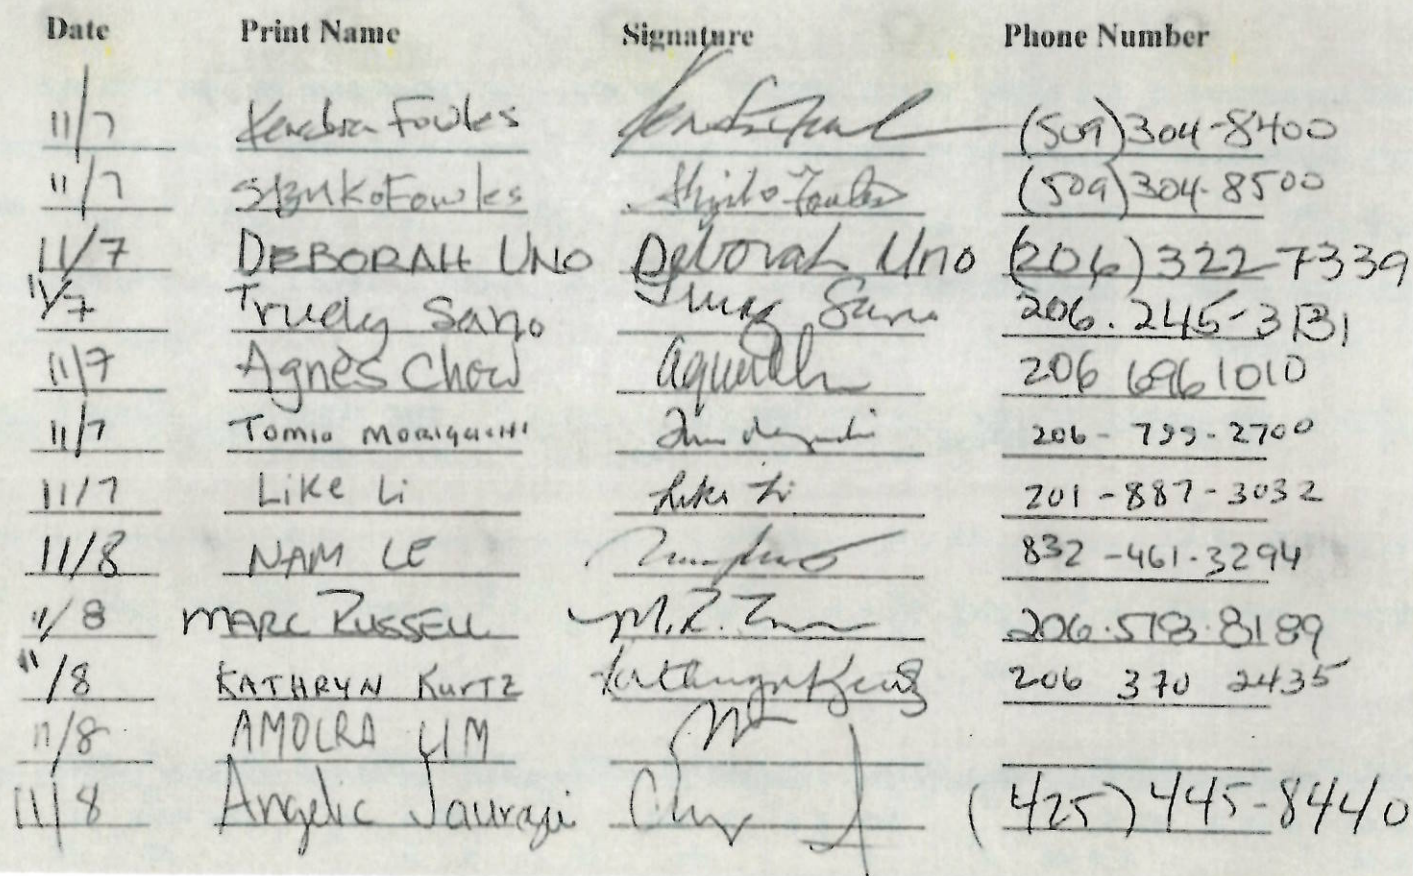 Date Print Name Signature Phone Number
11/7 Kendra Fowles (509)304-8400
11/7 Fowles Fowles (509)304-8500
11/7 DEBORAH UNO Deborah Uno (206)322-7339
11/7 Trudy Sano Sano 206.245-3131
11/7 Agnes Chow 206 696 1010
11/7 Tomio MORIGUCHI 206-799-2700
11/7 Like Li Like Li 201-887-3032
11/8 NAM LE 832-461-3294
11/8 MARC RUSSELL M.R. 206.8189
11/8 KATHRYN KURTZ Kathryn Kurtz 206 370 2435
11/8 AMOLRA LIM
11/8 Angelic (425)445-8440